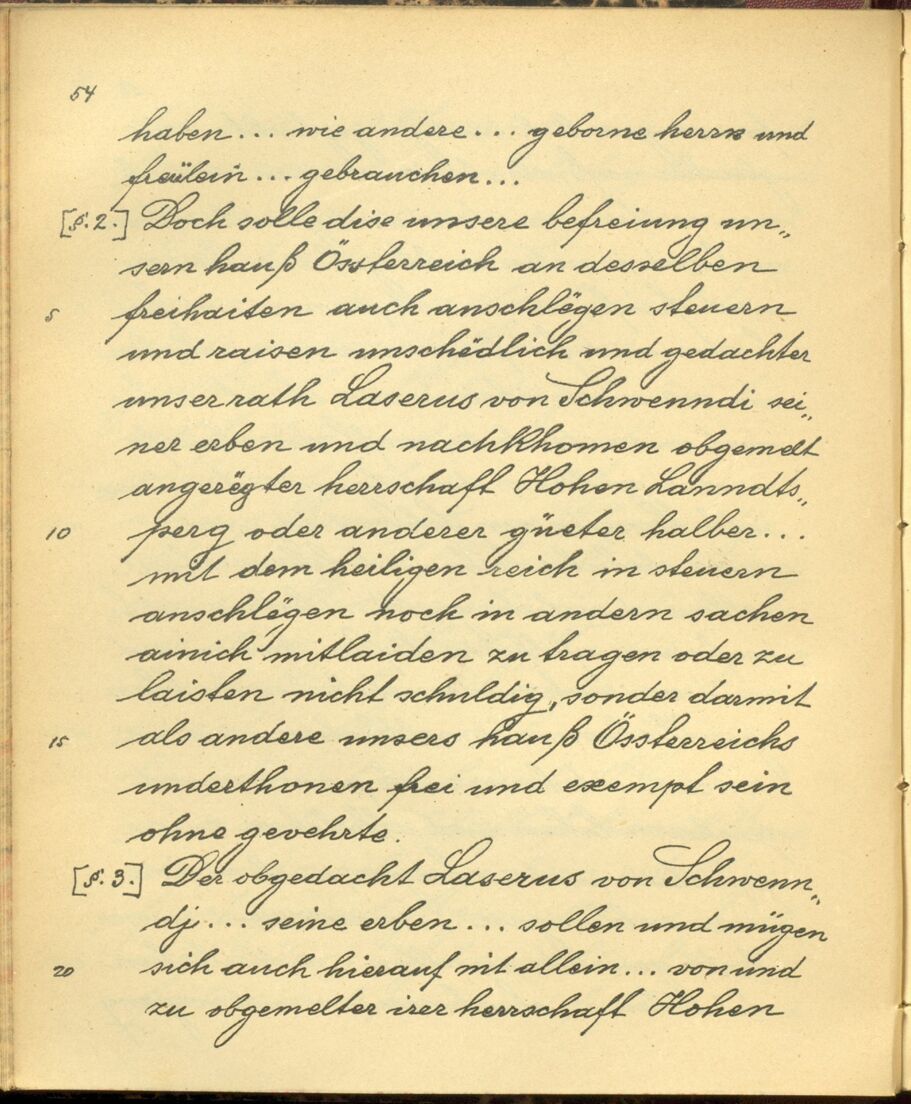 54
haben... wie andere... geborne herrn und
freülein... gebrauchen...
[§. 2.] Doch solle dise unsere befreiung un„
sern hauß Össterreich an desselben
5 freihaiten auch anschlëgen steuern
und raisen unschëdlich und gedachter
unser rath Laserus von Schwenndi sei„
ner erben und nachkhomen obgemelt
angerëgter herrschaft Hohen Lanndts„
10 perg oder anderer güeter halber...
mit dem heiligen reich in steuern
anschlëgen noch in andern sachen
ainich mitlaiden zu tragen oder zu
laisten nicht schuldig, sonder darmit
15 als andere unsers hauß Össterreichs
underthonen frei und exempt sein
ohne gevehrte.
[§. 3.] Der obgedacht Laserus von Schwenn„
dj... seine erben... sollen und mügen
20 sich auch hierauf nit allein... von und
zu obgemelter irer herrschaft Hohen